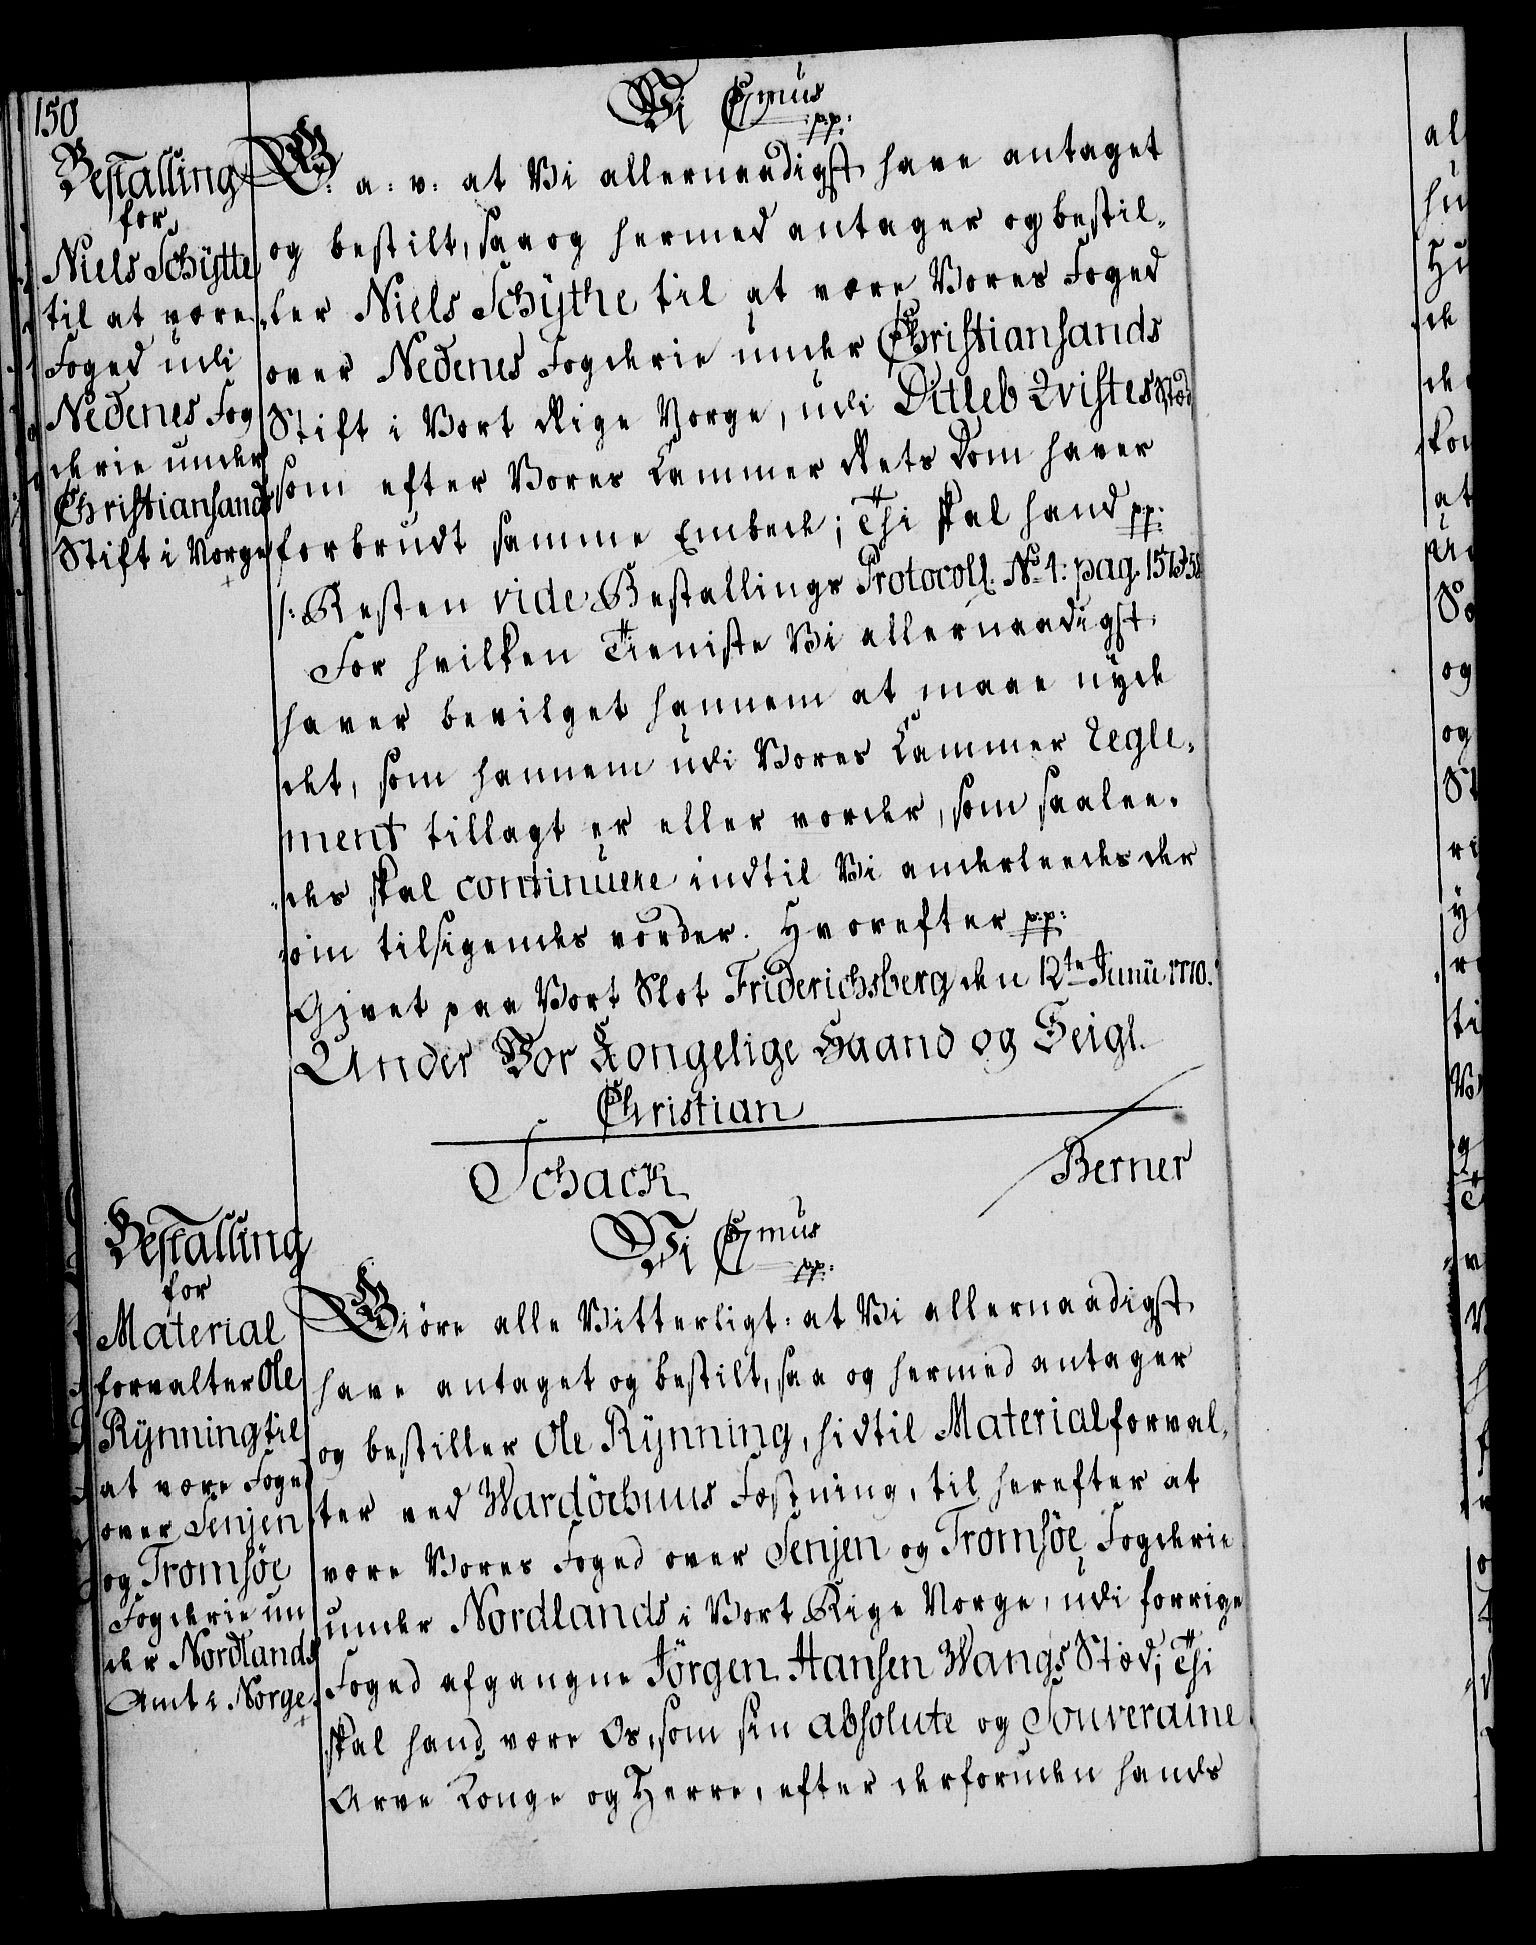 150
Bestalling
for
Niels Schÿtte
til at være
Foged udi
Nedenes Fog
derie under
Christiansands
Stift i Norge
Vi C 7mus
p.p:
G: a: v: at Vi allernaadigst have antaget
og bestilt, saa og hermed antager og bestil-
ler Niels Schÿthe til at være Vores Foged
over Nedenes Fogderie under Christiansands
Stift i Vort Rige Norge, udi Ditleb Qvistes Stæd
som efter Vores Cammer Rets Dom haver
forbrudt samme Embede; Thi skal hand pp:
/: Resten vide Bestallings Protocoll. No 1: pag. 157
For hvilken Tieniste Vi allernaadigst
haver bevilget hannem at maae nÿde
det, som hannem udi Vores Cammer Regle-
ment tillagt er eller vorder, som saalee-
des skal continuere indtil Vi anderleedes der
om tilsigendes vorder. Hvorefter p.p:
Givet paa Vort Slot Friderichsberg den 12te Junii 1770.
Under Vor Kongelige Haand og Seigl.
Christian
Schack
Berner
Bestalling
for
Material
forvalter Ole
Rÿnning til
at være Foged
over Senjen
og Tromsöe
Fogderie un
der Nordlands
Amt i Norge.
Vi C 7mus
pp:
Giöre alle Vitterligt: at Vi allernaadigst
have antaget og bestilt, saa og hermed antager
og bestiller Ole Rÿnning, hidtil Materialforval-
ter ved Wardöehuus Fæstning, til herefter at
være Vores Foged over Senjen og Tromsöe Fogderie
under Nordlands i Vort Rige Norge, udi forrige
Foged afgangne Jörgen Hansen Wangs Stæd; Thi
skal hand være Os, som sin absolute og Souveraine
Arve Konge og Herre, efter derforuden hands